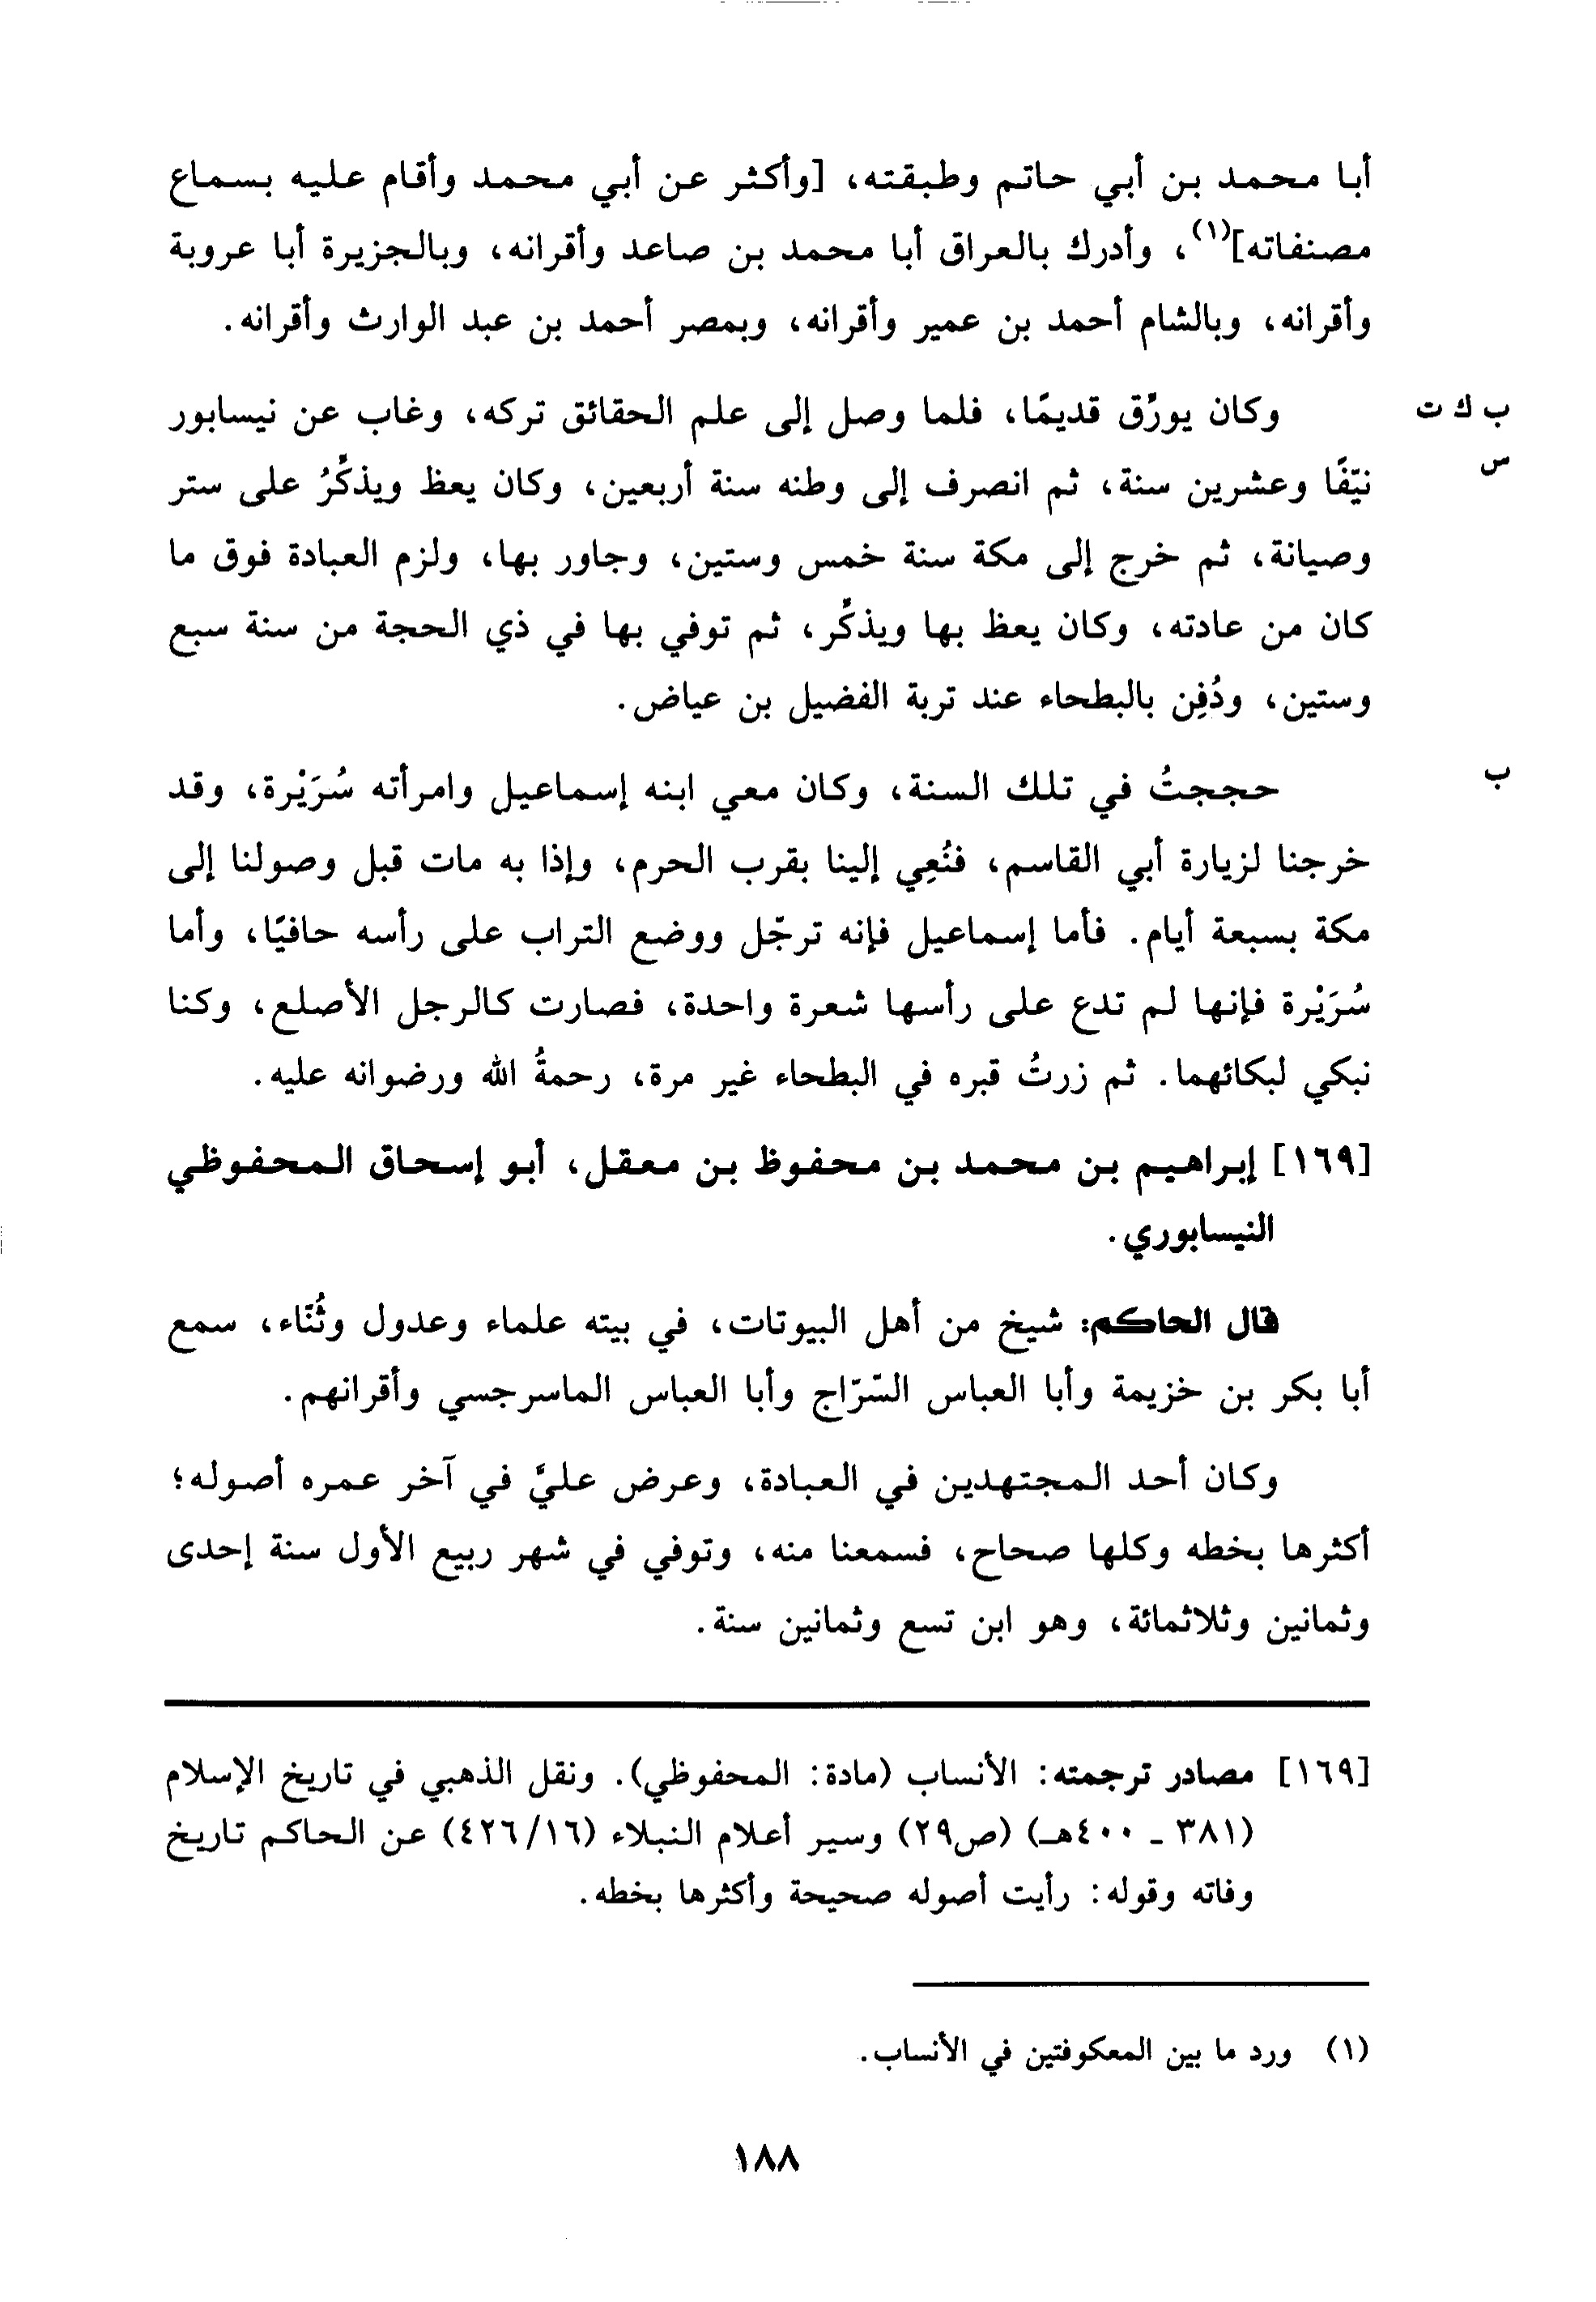 أبا محمد بن أبي حاتم وطبقته، [وأكثر عن أبي محمد وأقام عليه بسماع
مصنفاته](١)، وأدرك بالعراق أبا محمد بن صاعد وأقرانه، وبالجزيرة أبا عروبة
وأقرانه، وبالشام أحمد بن عمير وأقرانه، وبمصر أحمد بن عبد الوارث وأقرانه.
ب ك ت وكان يورِّق قديمًا، فلما وصل إلى علم الحقائق تركه، وغاب عن نيسابور
س نيّفًا وعشرين سنة، ثم انصرف إلى وطنه سنة أربعين، وكان يعظ ويذكِّرُ على ستر
وصيانة، ثم خرج إلى مكة سنة خمس وستين، وجاور بها، ولزم العبادة فوق ما
كان من عادته، وكان يعظ بها ويذكِّر، ثم توفي بها في ذي الحجة من سنة سبع
وستين، ودُفِن بالبطحاء عند تربة الفضيل بن عياض.
ب حججتُ في تلك السنة، وكان معي ابنه إسماعيل وامرأته سُرَيْرة، وقد
خرجنا لزيارة أبي القاسم، فنُعِي إلينا بقرب الحرم، وإذا به مات قبل وصولنا إلى
مكة بسبعة أيام. فأما إسماعيل فإنه ترجّل ووضع التراب على رأسه حافيًا، وأما
سُرَيْرة فإنها لم تدع على رأسها شعرة واحدة، فصارت كالرجل الأصلع، وكنا
نبكي لبكائهما. ثم زرتُ قبره في البطحاء غير مرة، رحمةُ الله ورضوانه عليه.
[١٦٩] إبراهيم بن محمد بن محفوظ بن معقل، أبو إسحاق المحفوظي
النيسابوري.
قال الحاكم: شيخ من أهل البيوتات، في بيته علماء وعدول وثُنّاء، سمع
أبا بكر بن خزيمة وأبا العباس السّرّاج وأبا العباس الماسرجسي وأقرانهم.
وكان أحد المجتهدين في العبادة، وعرض عليَّ في آخر عمره أصوله؛
أكثرها بخطه وكلها صحاح، فسمعنا منه، وتوفي في شهر ربيع الأول سنة إحدى
وثمانين وثلاثمائة، وهو ابن تسع وثمانين سنة.
[١٦٩] مصادر ترجمته: الأنساب (مادة: المحفوظي). ونقل الذهبي في تاريخ الإسلام
(٣٨١ - ٤٠٠هـ) (ص٢٩) وسير أعلام النبلاء (٤٢٦/١٦) عن الحاكم تاريخ
وفاته وقوله: رأيت أصوله صحيحة وأكثرها بخطه.
(١) ورد ما بين المعكوفتين في الأنساب.
١٨٨